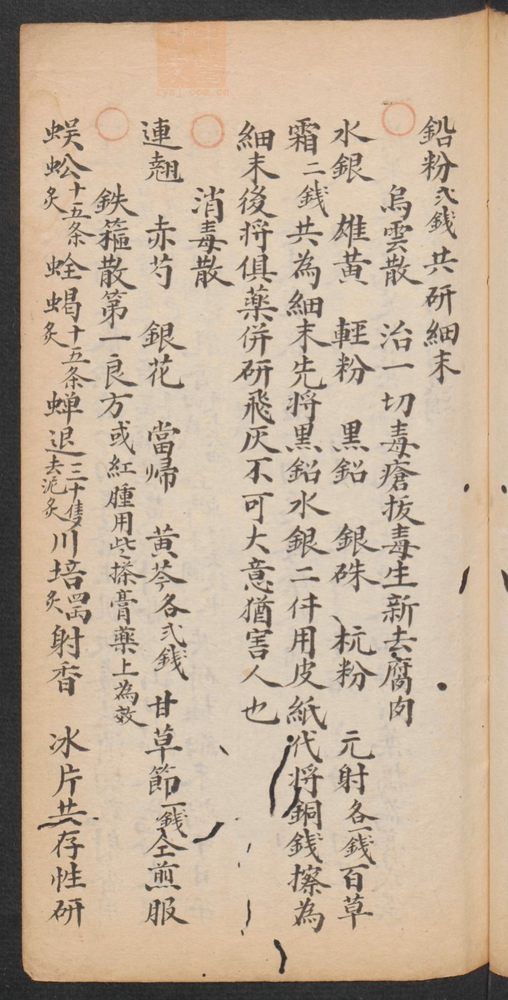 鉛粉弍錢共研細末
烏雲散 治一切毒瘡拔毒生新去腐肉
水銀 雄黃 輕粉 黑鉛 銀硃 杭粉 元射各一錢百草
霜二錢共為細末先將黑鉛水銀二件用皮紙代將銅錢擦為
細末後將俱藥併研飛灰不可大意猶害人也
消毒散
連翹 赤芍 銀花 當歸 黃芩各弍錢 甘草節一錢仝煎服
鉄箍散第一良方或紅腫用此搽膏藥上為效
蜈蚣十五条炙 蛤蝎十五条炙 蝉退三十隻去泥炙 川培炙 射香 冰片共存性研